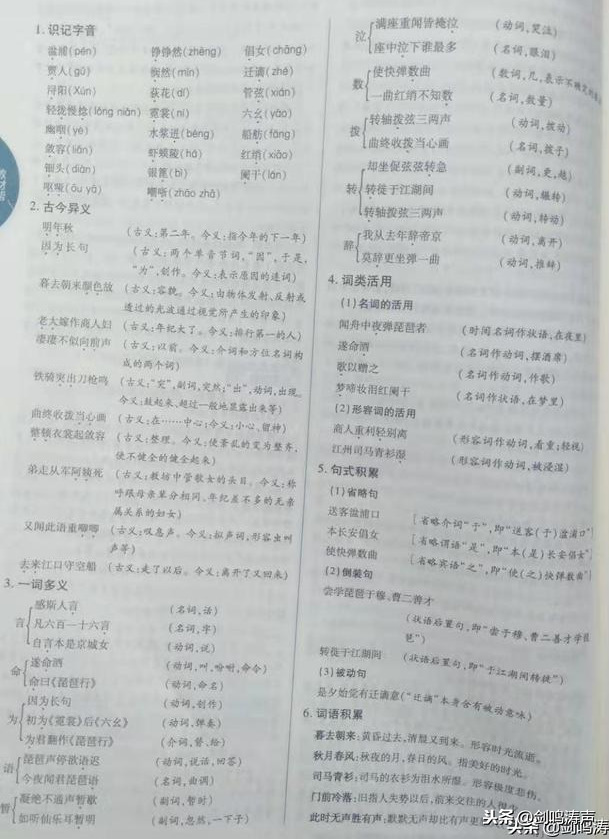 1. 识记字音
湓浦(pén) 铮铮然(zhēng) 倡女(chāng)
贾人(gǔ) 悯然(mǐn) 迁谪(zhé)
浔阳(Xún) 荻花(dí) 管弦(xián)
轻拢慢捻(lǒng niǎn) 霓裳(ní) 六幺(yāo)
幽咽(yè) 水浆迸(bèng) 船舫(fǎng)
敛容(liǎn) 虾蟆陵(há) 红绡(xiāo)
钿头(diàn) 银篦(bì) 阑干(lán)
呕哑(ōu yā) 嘲哳(zhāo zhā)
2. 古今异义
明年秋 (古义:第二年。今义:指今年的下一年)
因为长句 (古义:两个单音节词,"因",于是,
"为",创作。今义:表示原因的连词)
暮去朝来颜色故 (古义:容貌。今义:由物体发射、反射或
透过的光波通过视觉所产生的印象)
老大嫁作商人妇 (古义:年纪大了。今义:排行第一的人)
凄凄不似向前声 (古义:以前。今义:介词和方位名词构
成的两个词)
铁骑突出刀枪鸣 (古义:"突",副词,突然;"出",动词,出现。
今义:鼓起来、超过一般地显露出来等)
曲终收拨当心画 (古义:在……中心;今义:小心、留神)
整顿衣裳起敛容 (古义:整理。今义:使紊乱的变为整齐,
使不健全的健全起来)
弟走从军阿姨死 (古义:教坊中管歌女的长目。今义:称
呼跟母亲辈分相同、年纪差不多的无亲
属关系的妇女)
又闻此语重唧唧 (古义:叹息声。今义:拟声词,形容虫叫
声等)
去来江口守空船 (古义:走了以后。今义:离开了又回来)
3. 一词多义
言
感斯人言 (名词,话)
凡六百一十六言 (名词,字)
自言本是京城女 (动词,说)
命
遂命酒 (动词,叫,吩咐,命令)
命曰《琵琶行》 (动词,命名)
为
因为长句 (动词,创作)
初为《霓裳》后《六幺》 (动词,弹奏)
为君翻作《琵琶行》 (介词,替、给)
语
琵琶声停欲语迟 (动词,说话,回答)
今夜闻君琵琶语 (名词,曲调)
暂
凝绝不通声暂歇 (副词,暂时)
如听仙乐耳暂明 (副词,忽然,一下子)
泣
满座重闻皆掩泣 (动词,哭泣)
座中泣下谁最多 (名词,眼泪)
数
使快弹数曲 (数词,几,表示不确定的
一曲红绡不知数 (名词,数量)
拨
转轴拨弦三两声 (动词,拨动)
曲终收拨当心画 (名词,拨子)
转
却坐促弦弦转急 (副词,更,越)
转徙于江湖间 (动词,辗转)
转轴拨弦三两声 (动词,转动)
辞
我从去年辞帝京 (动词,离开)
莫辞更坐弹一曲 (动词,推辞)
4. 词类活用
(1)名词的活用
闻舟中夜弹琵琶者 (时间名词作状语,在夜里)
遂命酒 (名词作动词,摆酒席)
歌以赠之 (名词作动词,作歌)
梦啼妆泪红阑干 (名词作状语,在梦里)
(2)形容词的活用
商人重利轻别离 (形容词作动词,看重;轻视)
江州司马青衫湿 (形容词作动词,被浸湿)
5. 句式积累
(1)省略句
送客湓浦口 [省略介词"于",即"送客(于)湓浦口"]
本长安倡女 [省略谓语"是",即"本(是)长安倡女"]
使快弹数曲 [省略宾语"之",即"使(之)快弹数曲"]
(2)倒装句
尝学琵琶于穆、曹二善才
(状语后置句,即"尝于穆、曹二善才学琵
琶")
转徙于江湖间 (状语后置句,即"于江湖间转徙")
(3)被动句
是夕始觉有迁谪意("迁谪"本身含有被动意味)
6. 词语积累
暮去朝来:黄昏过去,清晨又到来。形容时光流逝。
秋月春风:秋夜的月,春日的风。指美好的时光。
司马青衫:司马的衣衫为泪水所湿。形容极度悲伤。
门前冷落:旧指人失势以后,前来交往的人很少
此时无声胜有声:默默无声却比有声更
头条 @剑鸣涛声